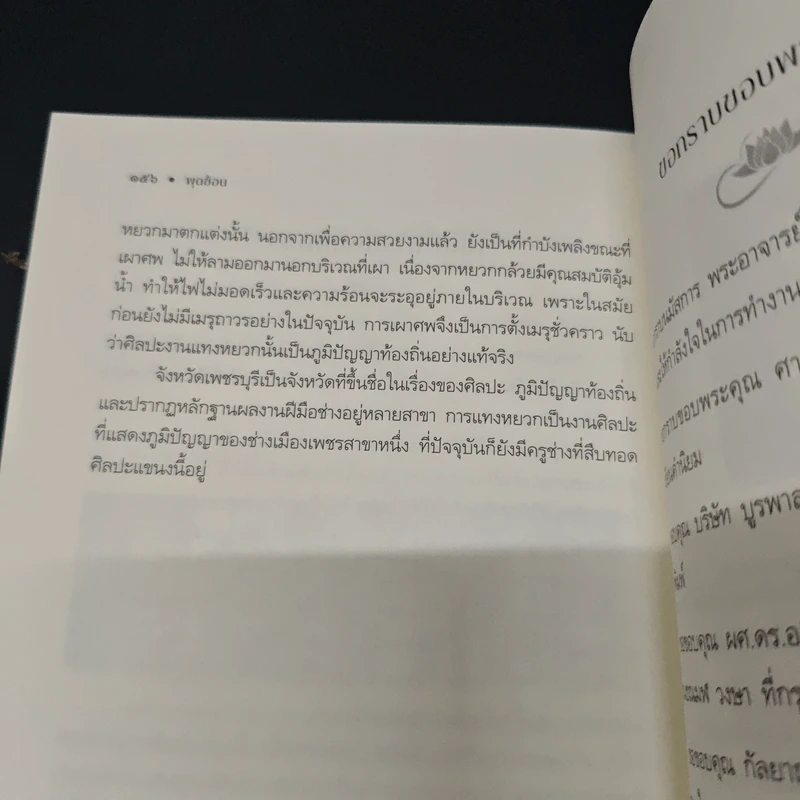 ๑๕๖ • พุดซ้อน
หยวกมาตกแต่งนั้น นอกจากเพื่อความสวยงามแล้ว ยังเป็นที่กำบังเพลิงขณะที่
เผาศพ ไม่ให้ลามออกมานอกบริเวณที่เผา เนื่องจากหยวกกล้วยมีคุณสมบัติอุ้ม
น้ำ ทำให้ไฟไม่มอดเร็วและความร้อนจะระอุอยู่ภายในบริเวณ เพราะในสมัย
ก่อนยังไม่มีเมรุถาวรอย่างในปัจจุบัน การเผาศพจึงเป็นการตั้งเมรุชั่วคราว นับ
ว่าศิลปะงานแทงหยวกนั้นเป็นภูมิปัญญาท้องถิ่นอย่างแท้จริง
จังหวัดเพชรบุรีเป็นจังหวัดที่ขึ้นชื่อในเรื่องของศิลปะ ภูมิปัญญาท้องถิ่น
และปรากฏหลักฐานผลงานฝีมือช่างอยู่หลายสาขา การแทงหยวกเป็นงานศิลปะ
ที่แสดงภูมิปัญญาของช่างเมืองเพชรสาขาหนึ่ง ที่ปัจจุบันก็ยังมีครูช่างที่สืบทอด
ศิลปะแขนงนี้อยู่
ขอกราบขอบพ
พระอาจารย์
ให้กำลังใจในการทำงาน
กราบขอบพระคุณ ศา
คำนิยม
ขอบคุณ บริษัท บูรพาส
ขอบคุณ ผศ.ดร.อ
วงษา ที่กร
ขอขอบคุณ กัลยา